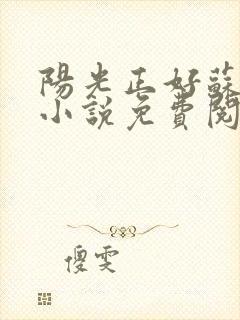 陽光正好蘇
小說免費閱
傻雯